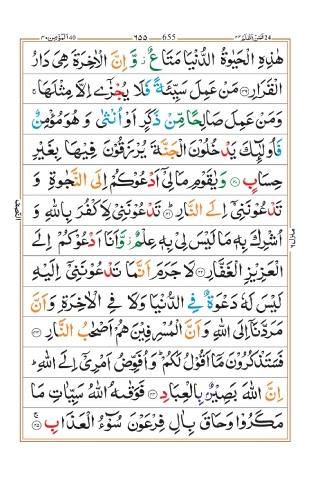 فمن اظلم ٢٤ ٦٥٥ 655 المؤمن ٤٠
هٰذِهِ الْحَيٰوةُ الدُّنْيَا مَتَاعٌ ؗ وَّ اِنَّ الْاٰخِرَةَ هِىَ دَارُ
الْقَرَارِ ﴿۳۹﴾ مَنْ عَمِلَ سَيِّئَةً فَلَا يُجْزٰٓى اِلَّا مِثْلَهَا ۚ
وَمَنْ عَمِلَ صَالِحًا مِّنْ ذَكَرٍ اَوْ اُنْثٰى وَ هُوَ مُؤْمِنٌ
فَاُولٰٓئِكَ يَدْخُلُوْنَ الْجَنَّةَ يُرْزَقُوْنَ فِيْهَا بِغَيْرِ
حِسَابٍ ﴿۴۰﴾ وَيٰقَوْمِ مَا لِىْۤ اَدْعُوْكُمْ اِلَى النَّجٰوةِ وَ
تَدْعُوْنَنِىْۤ اِلَى النَّارِ ﴿۴۱﴾ تَدْعُوْنَنِىْ لِاَكْفُرَ بِاللّٰهِ وَ
اُشْرِكَ بِهٖ مَا لَيْسَ لِىْ بِهٖ عِلْمٌ ؗ وَّاَنَا اَدْعُوْكُمْ اِلَى
الْعَزِيْزِ الْغَفَّارِ ﴿۴۲﴾ لَا جَرَمَ اَنَّمَا تَدْعُوْنَنِىْۤ اِلَيْهِ
لَيْسَ لَهٗ دَعْوَةٌ فِى الدُّنْيَا وَلَا فِى الْاٰخِرَةِ وَاَنَّ
مَرَدَّنَاۤ اِلَى اللّٰهِ وَ اَنَّ الْمُسْرِفِيْنَ هُمْ اَصْحٰبُ النَّارِ ﴿۴۳﴾
فَسَتَذْكُرُوْنَ مَاۤ اَقُوْلُ لَكُمْ ؕ وَ اُفَوِّضُ اَمْرِىْۤ اِلَى اللّٰهِ ؕ
اِنَّ اللّٰهَ بَصِيْرٌۢ بِالْعِبَادِ ﴿۴۴﴾ فَوَقٰٮهُ اللّٰهُ سَيِّاٰتِ مَا
مَكَرُوْا وَحَاقَ بِاٰلِ فِرْعَوْنَ سُوْٓءُ الْعَذَابِ ﴿۴۵﴾